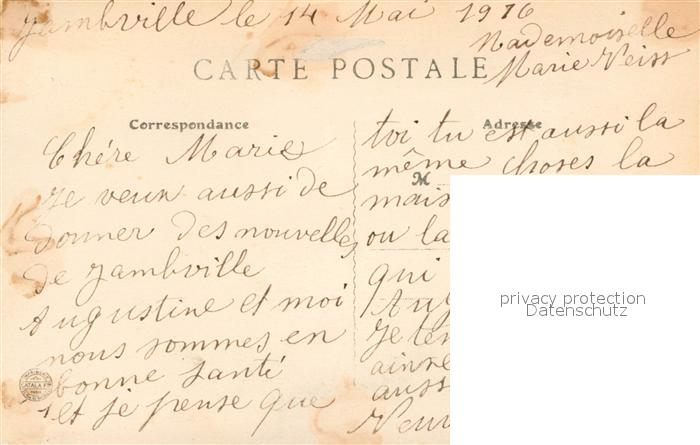 Jambville le 14 Mai 1916
Mademoiselle
Marie Neiss
CARTE POSTALE
Correspondance
Chére Marie
Je veux aussi de
donner des nouvelles
de Jambville
Augustine et moi
nous sommes en
bonne santé
et je pense que
Adresse
toi tu est aussi la
même choses la
M
mais
ou la
qui
privacy protection
Datenschutz